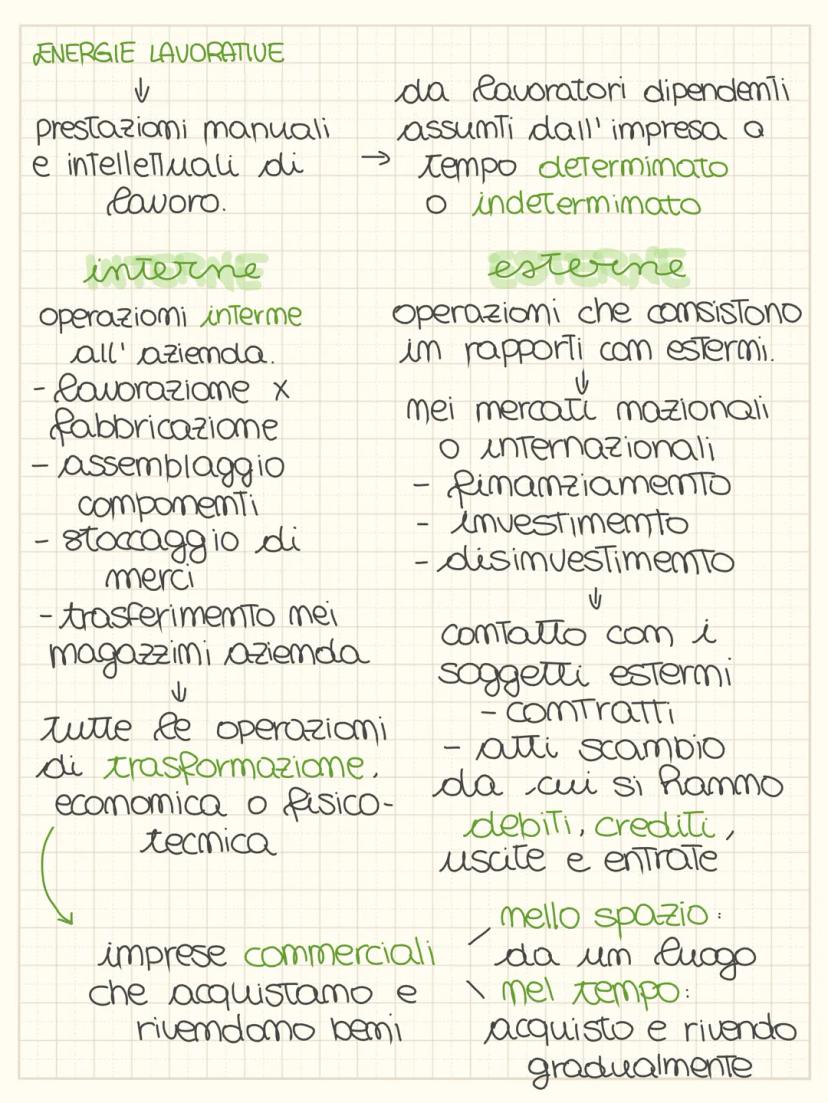 ENERGIE LAVORATIVE
↓
prestazioni manuali
e intellettuali di
lavoro.
→ da lavoratori dipendenti
assunti dall'impresa a
tempo determinato
o indeterminato
interne
operazioni interne
all'azienda.
- lavorazione x
fabbricazione
- assemblaggio
componenti
- stoccaggio di
merci
- trasferimento nei
magazzini azienda
↓
tutte le operazioni
di trasformazione,
economica o fisico-
tecnica
esterne
operazioni che consistono
in rapporti con esterni.
↓
nei mercati nazionali
o internazionali
- finanziamento
- investimento
- disinvestimento
↓
contatto con i
soggetti esterni
- contratti
- atti scambio
da cui si hanno
debiti, crediti,
uscite e entrate
imprese commerciali
che acquistano e
rivendono beni
nello spazio:
da un luogo
nel tempo:
acquisto e rivendo
gradualmente